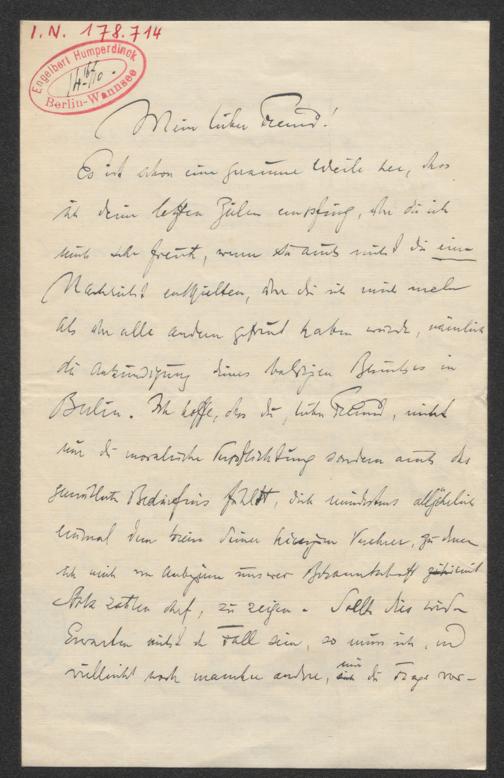 I.N. 178.714
Engelbert Humperdinck
Berlin-Wannsee
Mein lieber Freund!
Es ist schon eine geraume Weile her, dass
ich deine letzten Zeilen empfing, über die ich
mich sehr freute, wenn sie auch nicht die eine
Nachricht enthielten, über die ich mich mehr
als über alle andern gefreut haben würde, nämlich
die Ankündigung deines baldigen Besuches in
Berlin. Ich hoffe, dass du, lieber Freund, nicht
nur die moralische Verpflichtung sondern auch das
Bedürfnis fühlst, dich mindestens alljährlich
einmal dem Kreise deiner hiesigen Verehrer, zu denen
ich mich von Anbeginn unserer Bekanntschaft
zählen darf, zu zeigen. Sollte dies wider
Erwarten nicht der Fall sein, so muss ich, und
vielleicht noch mancher andere, mir die Frage vor-